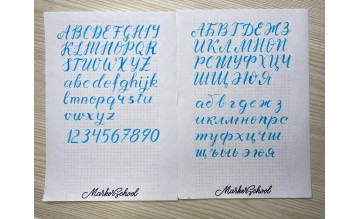 ABCDEFGHIJ
KLMNOPQR
STUVWXYZ
abcdefghijk
lmnopqrstu
vwxyz
1234567890
MarkerSchool
АБВГДЕЖЗ
ИКЛМНОП
РСТУФХЦЧ
ШЩЭЮЯ
абвгдежз
иклмнопрс
туфхцчш
щъыьэюя
MarkerSchool